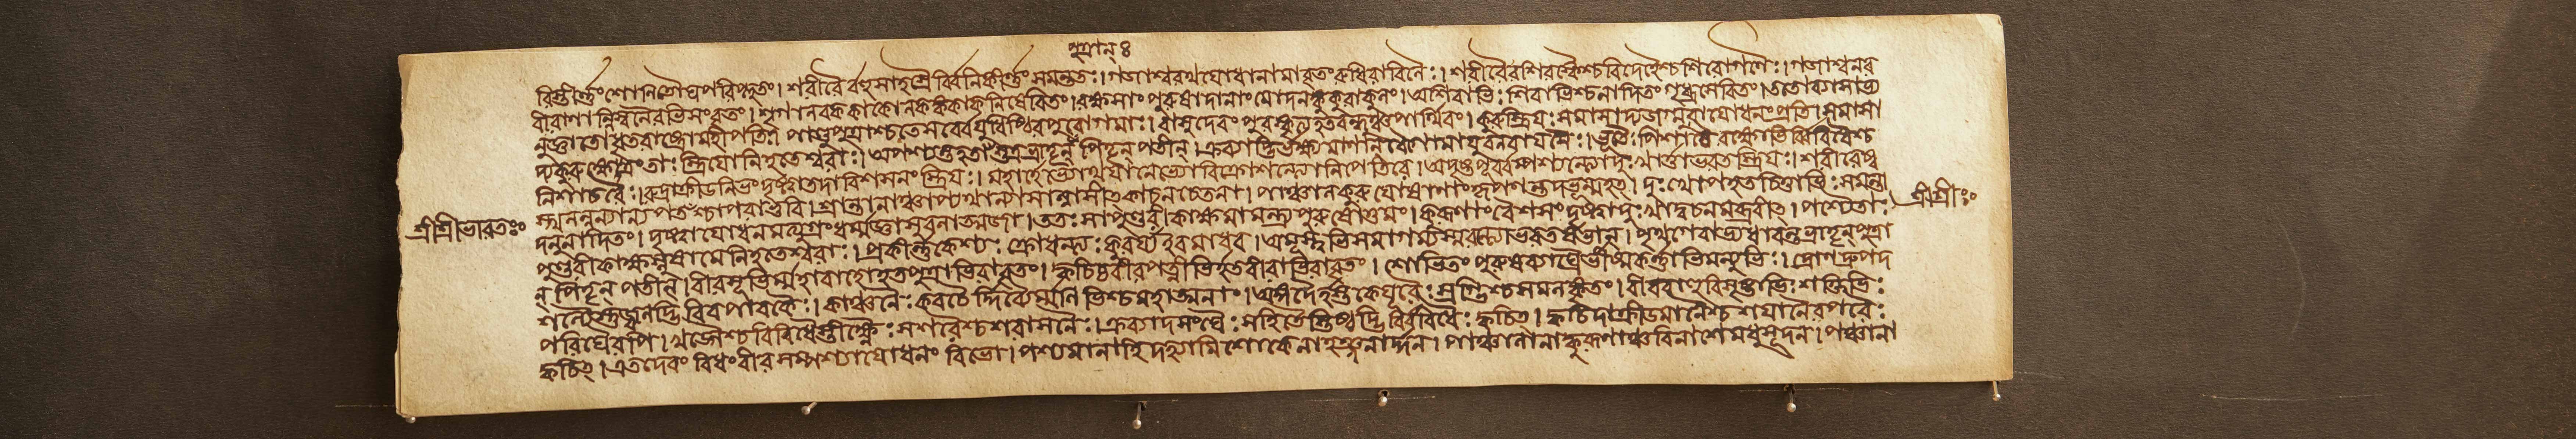 পুত্রান্ ৪
রিস্তীর্ণং শোনিতৌঘপরিপ্লুতং। শরীরৈ র্বহুসাহস্রৈ র্বিনিকীর্ণং সমন্ততঃ। গজাশ্বরথযোধানামাবৃতং রুধিরাবিলৈঃ। শরীরৈরশিরস্কৈশ্চ বিদেহৈশ্চ শিরোগণৈঃ। গজাশ্বনর
বীরাণা ন্নিস্বনৈরভিসংবৃতং। শৃগালবককাকোলকঙ্ককাকনিষেবিতং। রক্ষসাং পুরুষাদানাং মোদনঙ্কুকুরাকুলং। অশিবাভিঃ শিবাভিশ্চ নাদিতং গৃধ্রসেবিতং। ততোব্যাসাভ্য
নুজ্ঞাতোধৃতরাষ্ট্রোমহীপতিঃ। পাণ্ডুপুত্রাশ্চতে সর্ব্বে যুধিষ্ঠিরপুরোগমাঃ। বাসুদেবং পুরস্কৃত্য হতবন্ধুঞ্চ পার্থিবং। কুরুস্ত্রিয়ঃ সমাসাদ্য জগ্মুরাযোধনং প্রতি। সমাসা
দ্য কুরুক্ষেত্রং তাঃ স্ত্রিয়োনিহতেশ্বরাঃ। অপশ্যন্ত হতাঁস্তত্র পুত্রান্ ভ্রাতৄন্ পিতৄন্ পতীন্। ক্রব্যাদ্ভির্ভক্ষ্যমাণানি বৈ গোমায়ুবলবায়সৈঃ। ভূতৈঃ পিশাচৈ রক্ষোভি র্বিবিধৈশ্চ
নিশাচরৈঃ। রুদ্রাক্রীডনিভং দৃষ্ট্বাতদা বিশসনং স্ত্রিয়ঃ। মহার্হেভ্যোথযানেভ্যোবিক্রোশন্ত্যোনিপেতিরে। অদৃষ্টপূর্ব্বম্পশ্যন্ত্যোদুঃখার্ত্তাভরতস্ত্রিয়ঃ। শরীরেষ্ব
স্খলন্নন্যান্যপতঁশ্চাপরাভুবি। শ্রান্তানাঞ্চাপ্যনাথানাসান্নাসীৎকাচনচেতনা। পাঞ্চালকুরুযোষাণাং কৃপণন্তদভূন্মহৎ। দুঃখোপহতচিত্তাভিঃ সমন্তা
দনুনাদিতং। দৃষ্ট্বাযোধনমত্যুগ্রং ধর্ম্মজ্ঞাসুবলাত্মজা। ততঃ সাপুণ্ডরীকাক্ষমামন্ত্র্য পুরুষোত্তমং। কুরূণাং বৈশসং দৃষ্ট্বাদুঃখাদ্বচনমব্রবীৎ। পশ্যৈতাঃ
পুণ্ডরীকাক্ষস্নুষামেনিহতেশ্বরাঃ। প্রকীর্ণকেশ্যঃ ক্রোশন্ত্যঃ কুরর্য্যইবমাধব। অমূস্ত্বভিসমাগম্যস্মরন্ত্যোভরতর্ষভান্। পৃথগেবাভ্যধাবন্তভ্রাতৄন্ পুত্রা
ন্ পিতৄন্ পতীন্। বীরসূভির্ম্মহাবাহোহতপুত্রাভিরাবৃতং। ক্বচিচ্চবীরপত্নীভির্হতবীরাভিরাবৃতং। শোভিতং পুরুষব্যাঘ্রৈর্ভীষ্মকর্ণাভিমন্যুভিঃ। দ্রোণদ্রুপদ
শল্যৈশ্চজ্বলদ্ভিরিবপাবকৈঃ। কাঞ্চনৈঃ কবচৈ র্দিব্যৈর্ম্মণিভিশ্চমহাত্মনাং। অঙ্গদৈর্হস্তকেয়ূরৈঃ স্রগ্ভিশ্চসমলঙ্কৃতং। বীরবাহুবিসৃষ্টাভিঃ শক্তিভিঃ
পরিঘৈরপি। খড্গৈশ্চবিবিধৈস্তীক্ষ্ণৈঃ সশরৈশ্চশরাসনৈঃ। ক্রব্যাদসংঘৈঃ সহিতৈস্তিষ্ঠদ্ভি র্বিবিধৈঃ ক্বচিৎ। ক্বচিদাক্রীডমানৈশ্চশয়ানৈরপরৈঃ
ক্বচিৎ। এতদেবং বিধং বীরসম্পশ্যাযোধনং বিভো। পশ্যমানাহিদহ্যামিশোকেনাহঞ্জনার্দ্দন। পাঞ্চালানাঙ্কুরূণাঞ্চবিনাশেমধুসূদন। পঞ্চানা
শ্রীশ্রীভারতঃ
শ্রীশ্রীঃ